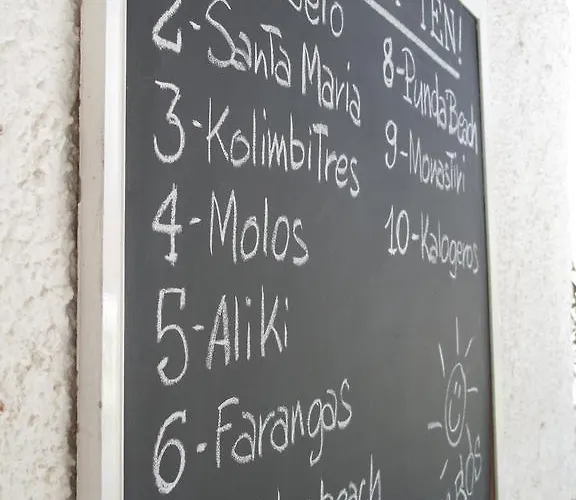 TEN!
2-Santa Maria
3-KolimbiTres
4-Molos
5-Aliki
6-Farangas
beach
8-Punda Beach
9-Monastiri
10-Kalogeros